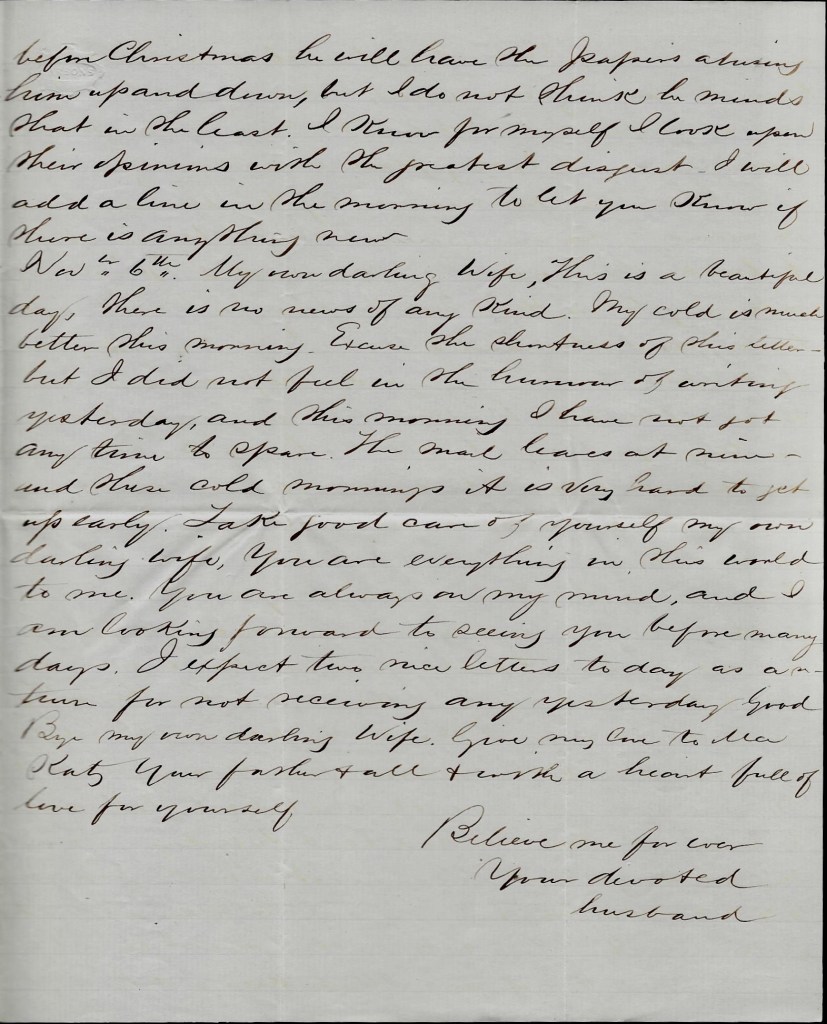 before Christmas he will have the papers abusing
him up and down, but I do not think he minds
that in the least. I know for myself I look upon
their opinions with the greatest disgust - I will
add a line in the morning to let you know if
there is anything new
Nov " 6th. My own darling Wife, This is a beautiful
day, there is no news of any kind. My cold is much
better this morning. Excuse the shortness of this letter -
but I did not feel in the humour of writing
yesterday, and this morning I have not got
any time to spare. The mail leaves at nine -
and these cold mornings it is very hard to get
up early. Take good care of yourself my own
darling wife, You are everything in this world
to me. You are always on my mind, and I
am looking forward to seeing you before many
days. I expect two nice letters to day as a re-
turn for not receiving any yesterday Good
Bye my own darling Wife. Give my love to Ma
Katy Your father & all & with a heart full of
love for yourself
Believe me for ever
Your devoted
husband